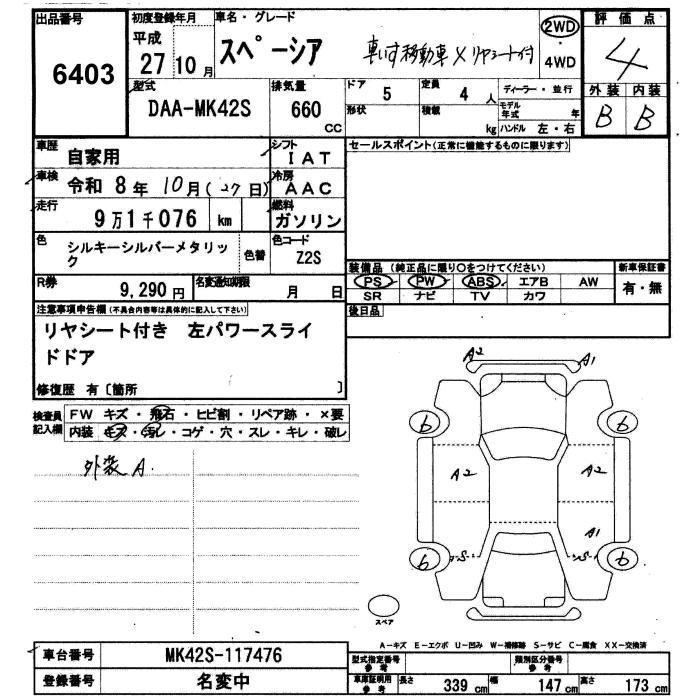 出品番号
6403
初度登録年月
平成
27 10月
車名・グレード
スペーシア
車いす移動車 X リヤシート付
2WD
4WD
評価点
4
型式
DAA-MK42S
排気量
660
cc
ドア
5
定員
4 人
形状
積載
kg
ディーラー・並行
モデル年式 年
ハンドル 左・右
外装 内装
B B
車歴
自家用
シフト
IAT
車検
令和 8年 10月(27日)
冷房
AAC
走行
9万1千076 km
燃料
ガソリン
色
シルキーシルバーメタリック
色替
色コード
Z2S
R券
9,290円
名変通知期限
月 日
セールスポイント(正常に機能するものに限ります)
装備品(純正品に限り○をつけてください)
PS PW ABS エアB AW
SR ナビ TV カワ
新車保証書
有・無
後日品
注意事項申告欄(不具合内容等は具体的に記入して下さい)
リヤシート付き 左パワースライ
ドドア
修復歴 有〔箇所 〕
検査員
記入欄
FW キズ・飛石・ヒビ割・リペア跡・×要
内装 キズ・汚レ・コゲ・穴・スレ・キレ・破レ
外装A.
A2
A1
6
6
A2
A2
A1
S
S
6
6
スペア
A-キズ E-エクボ U-凹み W-補修跡 S-サビ C-腐食 XX-交換済
車台番号
MK42S-117476
登録番号
名変中
型式指定番号
参考
類別区分番号
参考
車庫証明用
参考
長さ 339 cm
幅 147 cm
高さ 173 cm